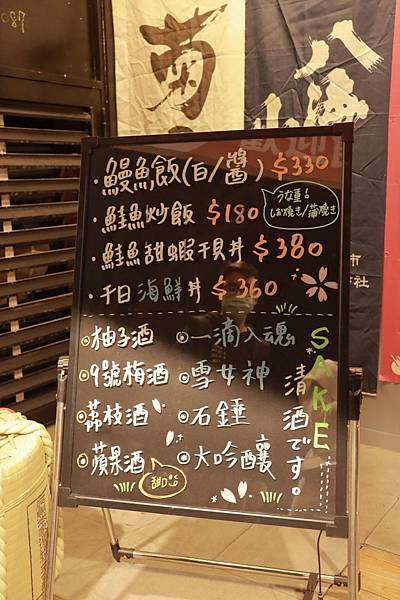 087
菊
八海
・鰻魚飯(白/醬) $330
うな重。
しお焼き/蒲焼き
・鮭魚炒飯 $180
・鮭魚甜蝦干貝丼 $380
・千日海鮮丼 $360
柚子酒
9號梅酒
荔枝酒
蘋果酒
甜口
一滴入魂
雪女神
石錘
大吟釀
SAKE
清酒です。